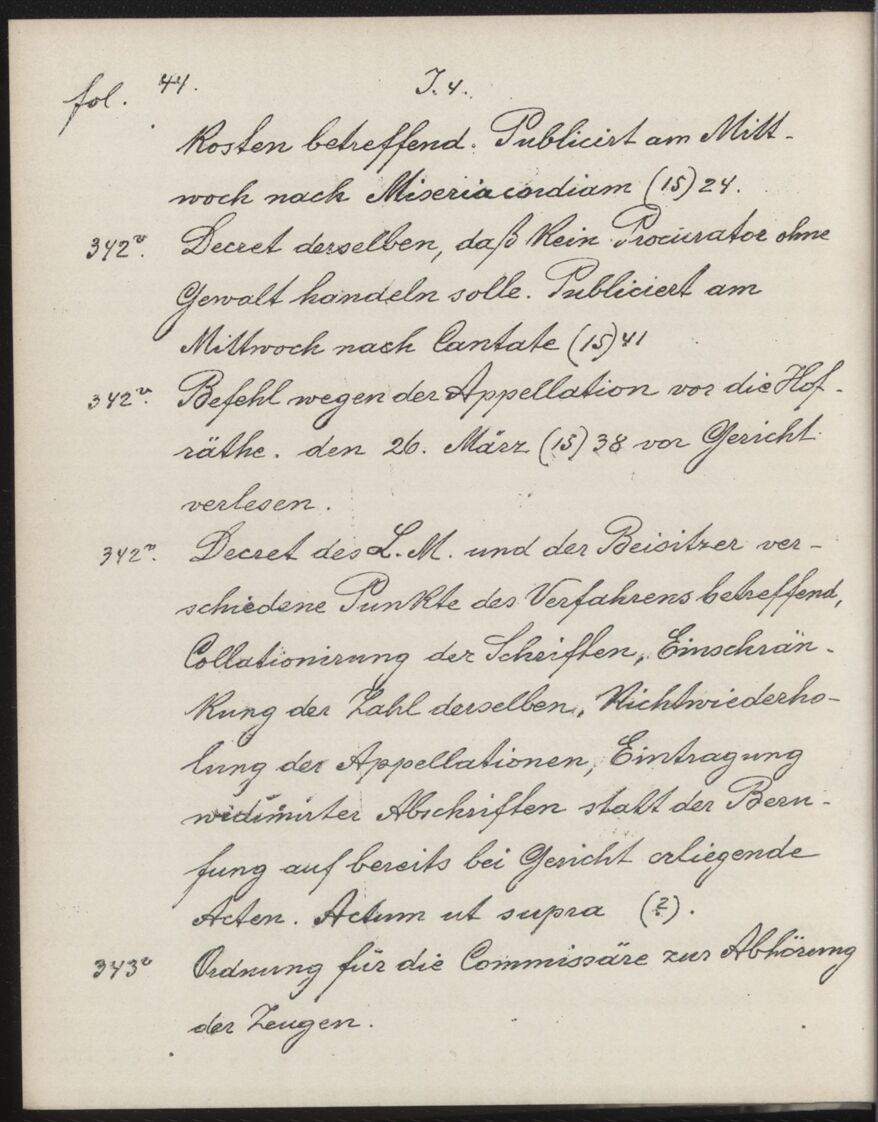 fol. 44. I. 4.
Kosten betreffend. Publicirt am Mitt-
woch nach Misericordiam (15) 24.
342v. Decret derselben, daß kein Procurator ohne
Gewalt handeln solle. Publiciert am
Mittwoch nach Cantate (15) 41
342v. Befehl wegen der Appellation vor die Hof-
räthe. den 26. März (15) 38 vor Gericht
verlesen.
342v. Decret des L. M. und der Beisitzer ver-
schiedene Punkte des Verfahrens betreffend,
Collationirung der Schriften, Einschrän-
kung der Zahl derselben, Nichtwiederho-
lung der Appellationen, Eintragung
widimirter Abschriften statt der Beru-
fung auf bereits bei Gericht erliegende
Acten. Actum ut supra (?).
343v Ordnung für die Commissäre zur Abhörung
der Zeugen.